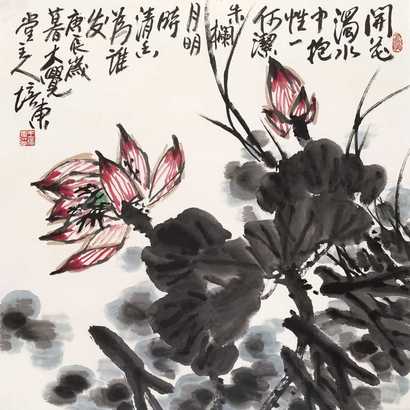 開花
濁水
中抱
性一
何潔
朱欄
月明
時
清香
為誰
发
庚辰歲
暮大覺
堂主人
培東